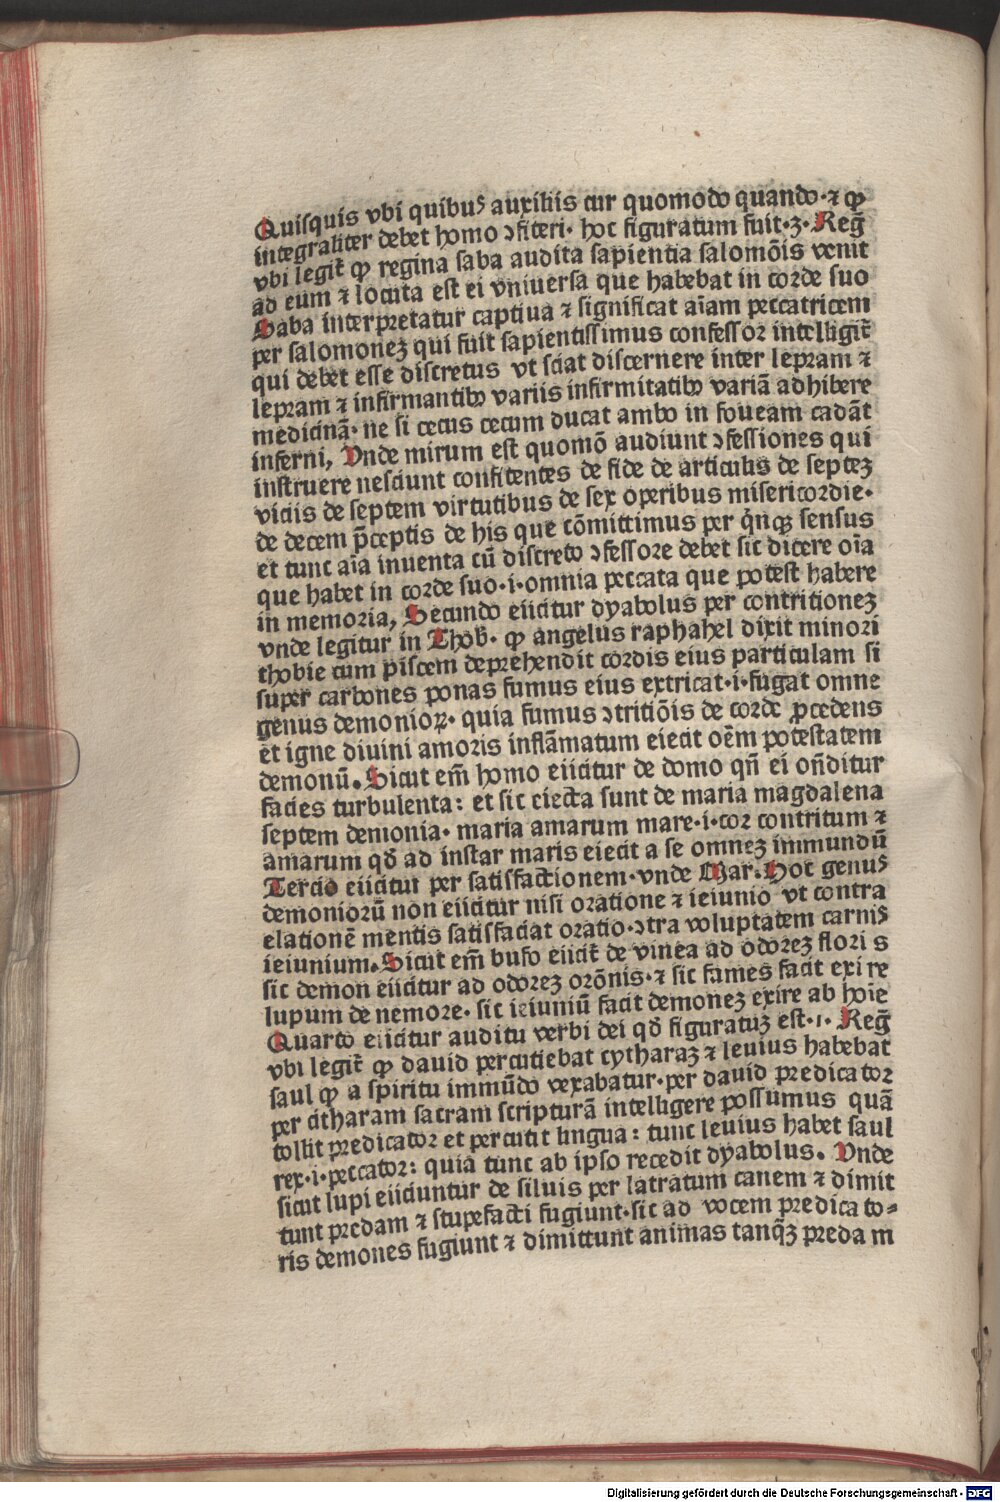 Quisquis vbi quibuꝰ auxiliis cur quomodo quando·⁊ ꝙ
integraliter debet homo ↄfiteri· hoc figuratum fuit·3· Reg̃
vbi legit̃ ꝙ regina saba audita sapientia salomõis venit
ad eum ⁊ locuta est ei vniuersa que habebat in corde suo
Saba interpretatur captiua ⁊ significat aĩam peccatricem
per salomoneʒ qui fuit sapientissimus confessor intelligit̃
qui debet esse discretus vt sciat discernere inter lepram ⁊
lepram ⁊ infirmantibꝰ variis infirmitatibꝰ variã adhibere
medicinã· ne si cecus cecum ducat ambo in foueam cadãt
inferni, Vnde mirum est quomõ audiunt ↄfessiones qui
instruere nesciunt confitentes de fide de articulis de septeʒ
viciis de septem virtutibus de sex operibus misericordie·
de decem p̃ceptis de his que cõmittimus per q̃nqꝫ sensus
et tunc aĩa inuenta cũ discreto ↄfessore debet sic dicere oĩa
que habet in corde suo·i·omnia peccata que potest habere
in memoria, Secundo eiicitur dyabolus per contritioneʒ
vnde legitur in Thob̃· ꝙ angelus raphahel dixit minori
thobie cum piscem deprehendit cordis eius particulam si
super carbones ponas fumus eius extricat·i·fugat omne
genus demonioꝝ· quia fumus ↄtritiõis de corde ꝓcedens
et igne diuini amoris inflãmatum eiecit oẽm potestatem
demonũ. Sicut em̃ homo eiicitur de domo qñ ei oñditur
facies turbulenta: et sic eiecta sunt de maria magdalena
septem demonia· maria amarum mare·i·cor contritum ⁊
amarum qd̃ ad instar maris eiecit a se omneʒ immundũ
Tercio eiicitur per satisfactionem·vnde Mar· Hoc genuꝰ
demoniorũ non eiicitur nisi oratione ⁊ ieiunio vt contra
elationẽ mentis satisfaciat oratio·ↄtra voluptatem carniꝰ
ieiunium. Sicut em̃ bufo eiicit̃ de vinea ad odoreʒ flori s
sic demon eiicitur ad odoreʒ orõnis·⁊ sic fames facit exi re
lupum de nemore· sic ieiuniũ facit demoneʒ exire ab hoĩe
Quarto eiicitur auditu verbi dei qd̃ figuratuʒ est·1· Reg̃
vbi legit̃ ꝙ dauid percutiebat cytharaʒ ⁊ leuius habebat
saul ꝙ a spiritu immũdo vexabatur·per dauid predicator
per citharam sacram scripturã intelligere possumus quã
tollit predicator et percutit lingua: tunc leuius habet saul
rex·i·peccator: quia tunc ab ipso recedit dyabolus. Vnde
sicut lupi eiiciuntur de siluis per latratum canem ⁊ dimit
tunt predam ⁊ stupefacti fugiunt·sic ad vocem predicato-
ris demones fugiunt ⁊ dimittunt animas tanq̃ʒ preda m
Digitalisierung gefördert durch die Deutsche Forschungsgemeinschaft - DFG